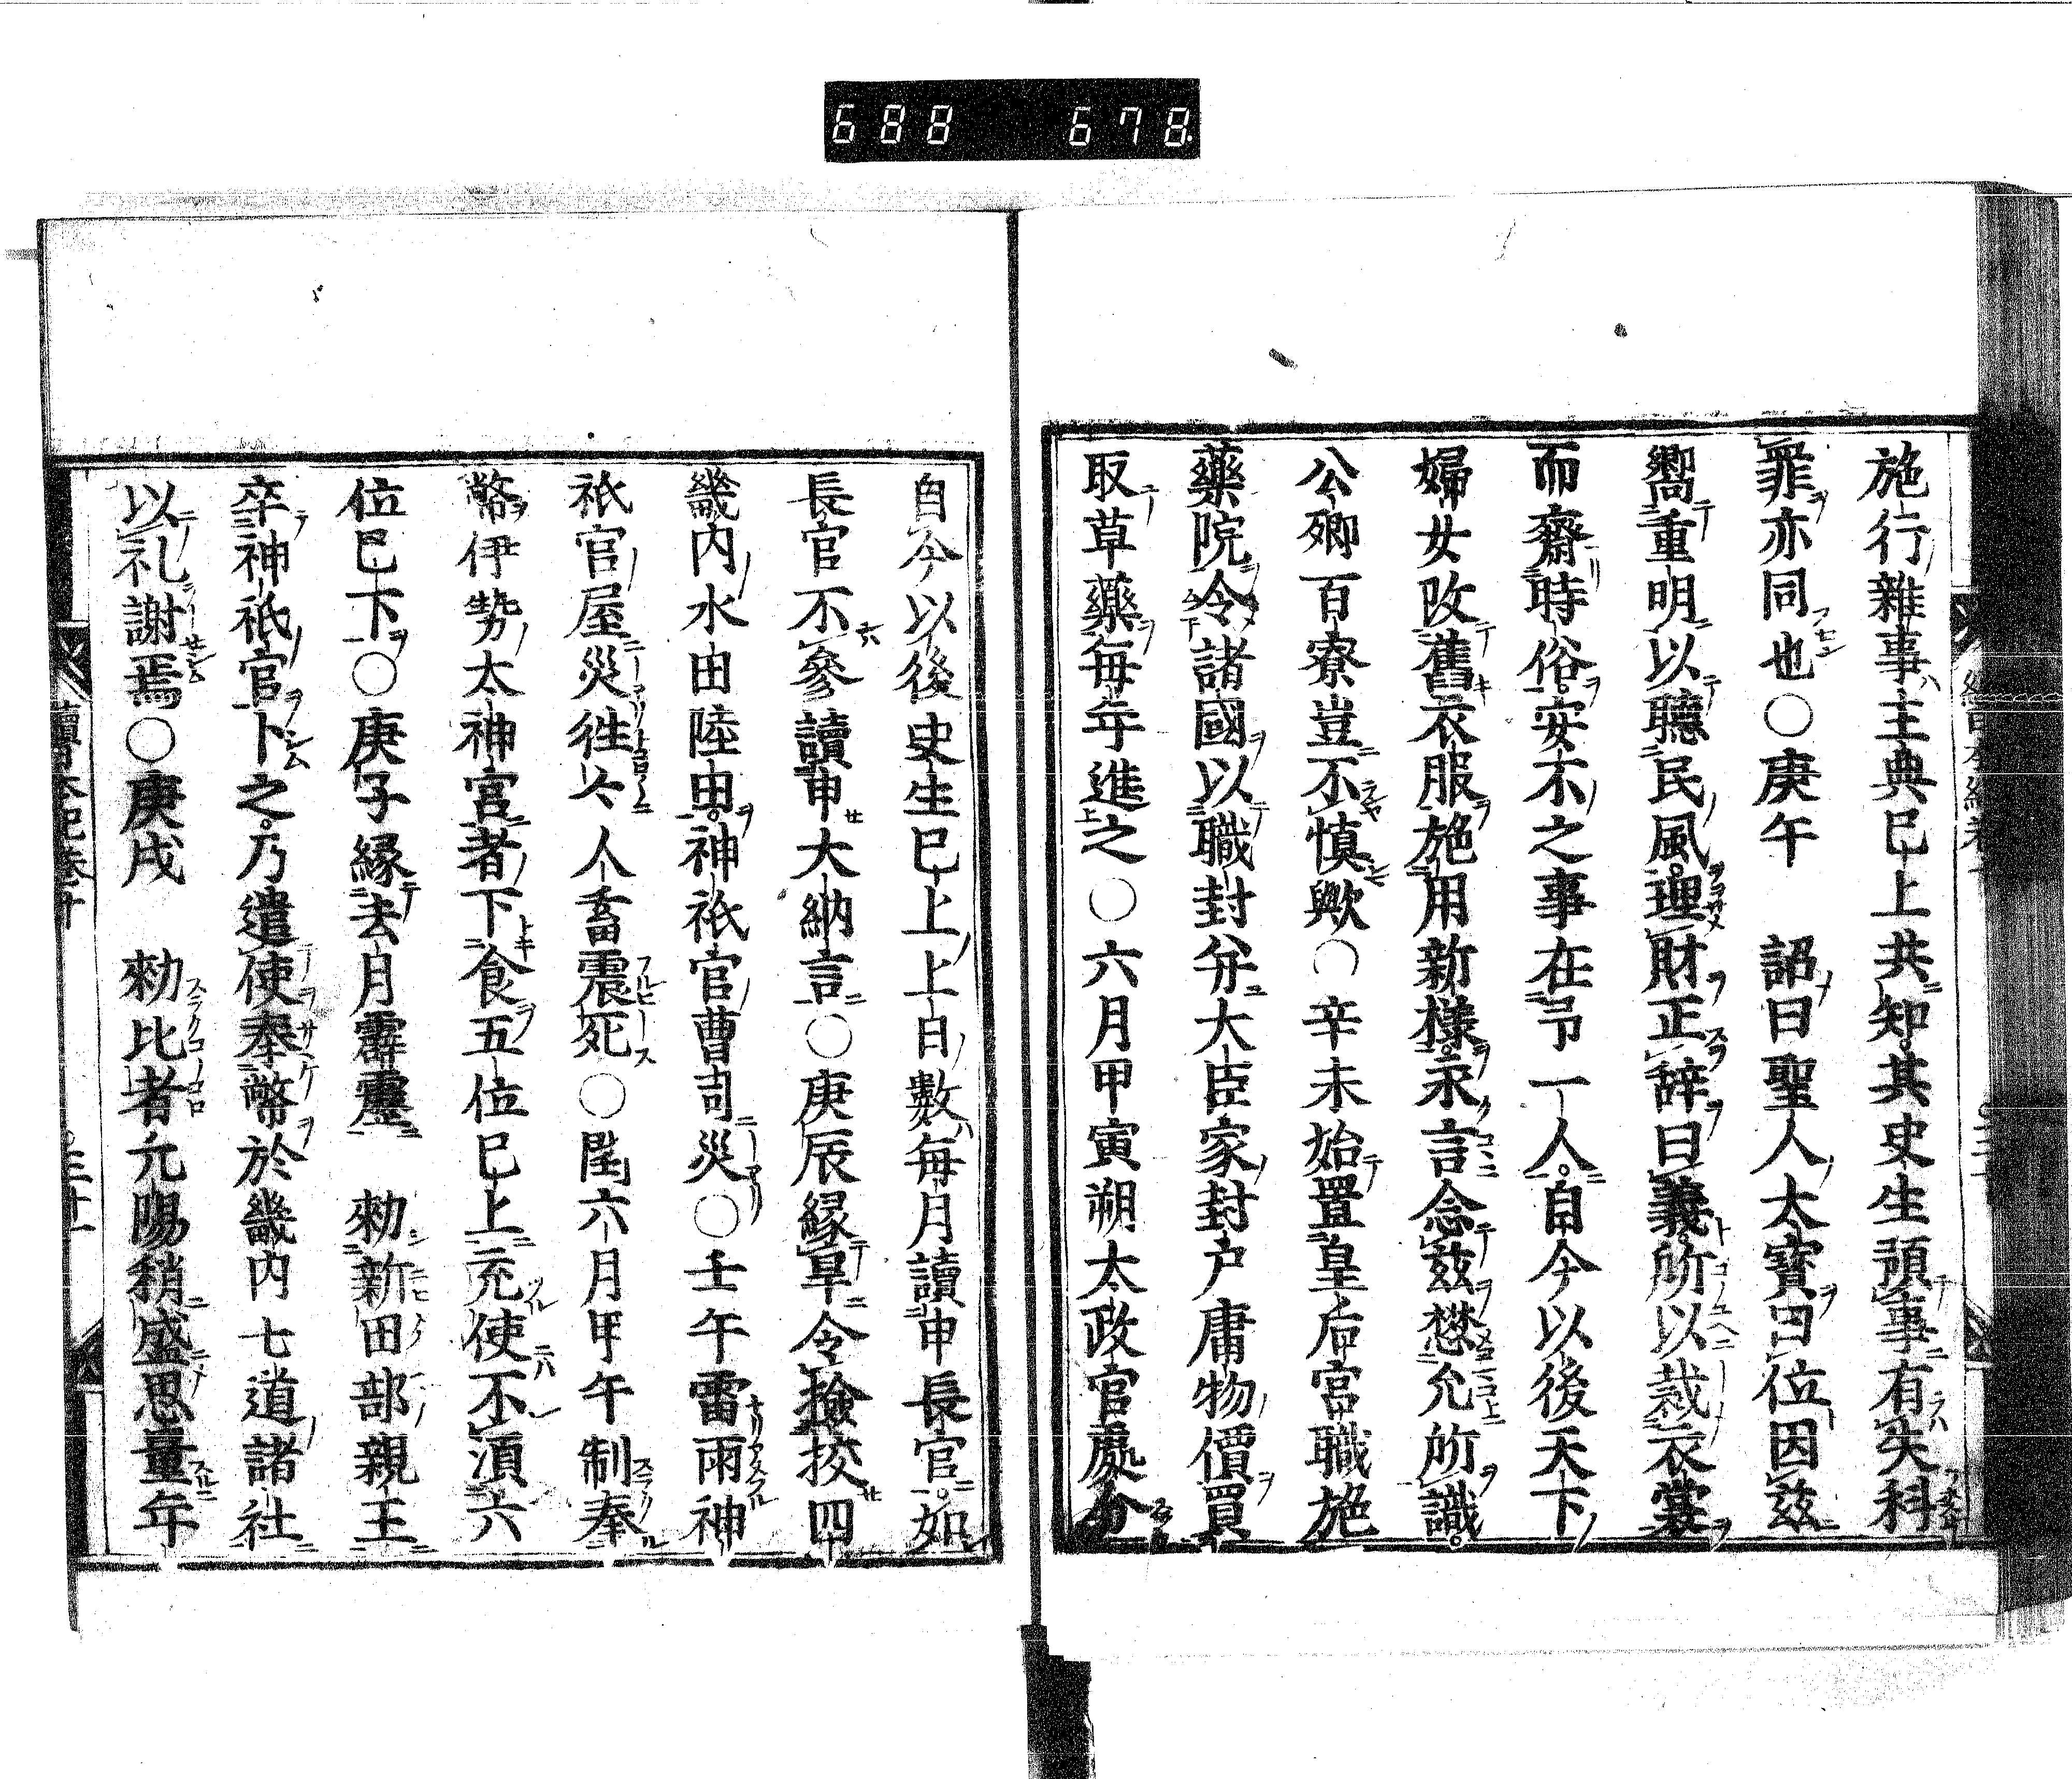 688 678
施行雜事主典已上共知其史生預事有失科
罪亦同也○庚午 詔曰聖人大寶曰位因茲
嚮重明以聽民風理財正辞曰義所以裁衣裳
而齋時俗安不之事在予一人自今以後天下
婦女改舊衣服施用新樣永言念茲懋允所識
公卿百寮豈不慎歟○辛未始置皇后宮職施
藥院令諸國以職封并大臣家封戸庸物價買
取草藥每年進之○六月甲寅朔太政官處分
自今以後史生已上上日數每月讀申長官如
長官不參讀申大納言○庚辰緣旱令撿挍四
畿內水田陸田神祇官曹司災○壬午雷雨神
祇官屋災往々人畜震死○閏六月甲午制奉
幣伊勢太神宮者卜食五位已上充使不須六
位已下○庚子緣去月霹靂 勑新田部親王
卒神祇官卜之乃遣使奉幣於畿內七道諸社
以礼謝焉○庚戌 勑比者亢陽稍盛思量年